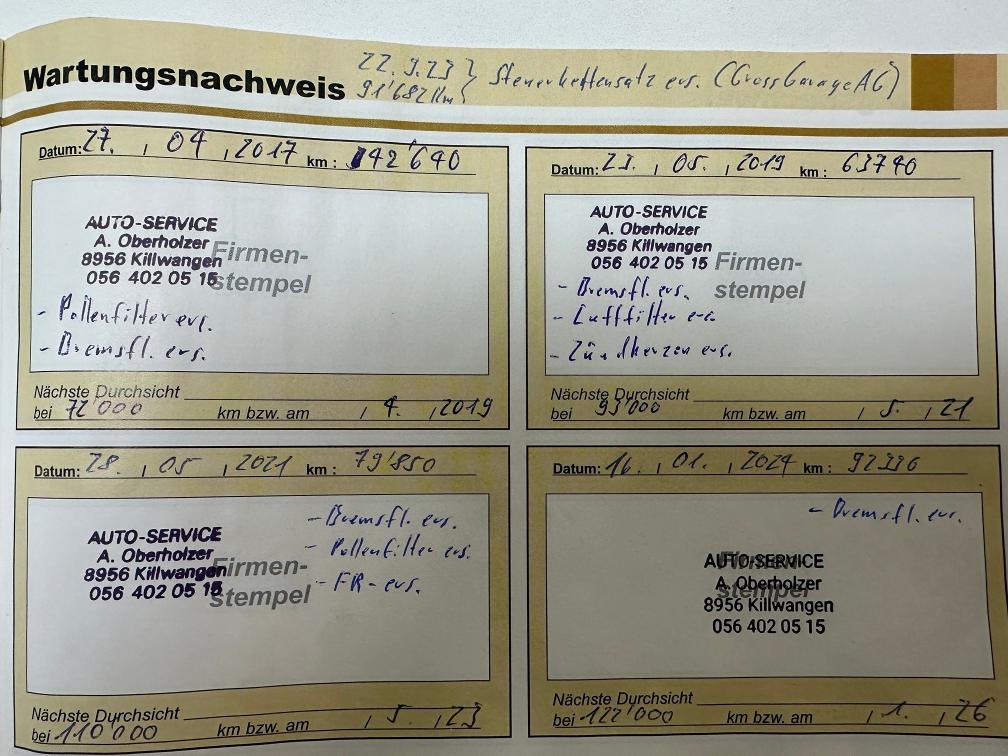 Wartungsnachweis
22.9.23 } Steuerkettensatz ers. (GrossGarage AG)
91'682 Km
Datum: 27. , 04 , 2017 km : 42'640
AUTO-SERVICE
A. Oberholzer
8956 Killwangen
056 402 05 15
Firmen-
stempel
- Pollenfilter ers.
- Bremsfl. ers.
Nächste Durchsicht
bei 72'000 km bzw. am / 4. , 2019
Datum: 23. , 05. , 2019 km : 63740
AUTO-SERVICE
A. Oberholzer
8956 Killwangen
056 402 05 15
Firmen-
stempel
- Bremsfl. ers.
- Luftfilter ers.
- Zündkerzen ers.
Nächste Durchsicht
bei 93'000 km bzw. am / 5. , 21
Datum: 28. , 05 , 2021 km : 79'850
AUTO-SERVICE
A. Oberholzer
8956 Killwangen
056 402 05 15
Firmen-
stempel
- Bremsfl. ers.
- Pollenfilter ers.
- FR- ers.
Nächste Durchsicht
bei 110'000 km bzw. am / 5. , 23
Datum: 16. , 01. , 2024 km : 92336
- Bremsfl. ers.
AUTO-SERVICE
A. Oberholzer
8956 Killwangen
056 402 05 15
Firmen-
stempel
Nächste Durchsicht
bei 122'000 km bzw. am / 1. , 26